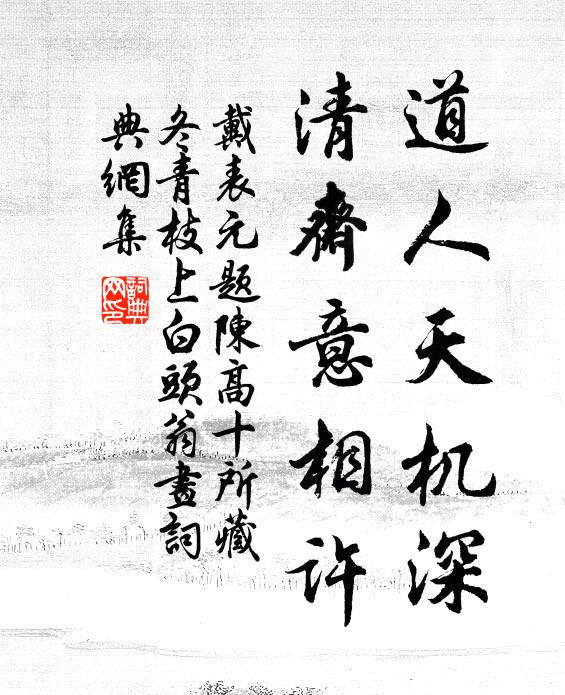 道人天机深
清齋意相许
戴表元题陳高十所藏
冬青枝上白頭翁畫詞
典網集
詞典
网印